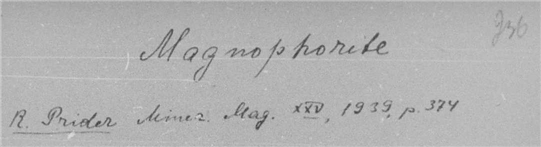 736
Magnophorite
R. Prider Miner. Mag. XXV, 1939, p. 374